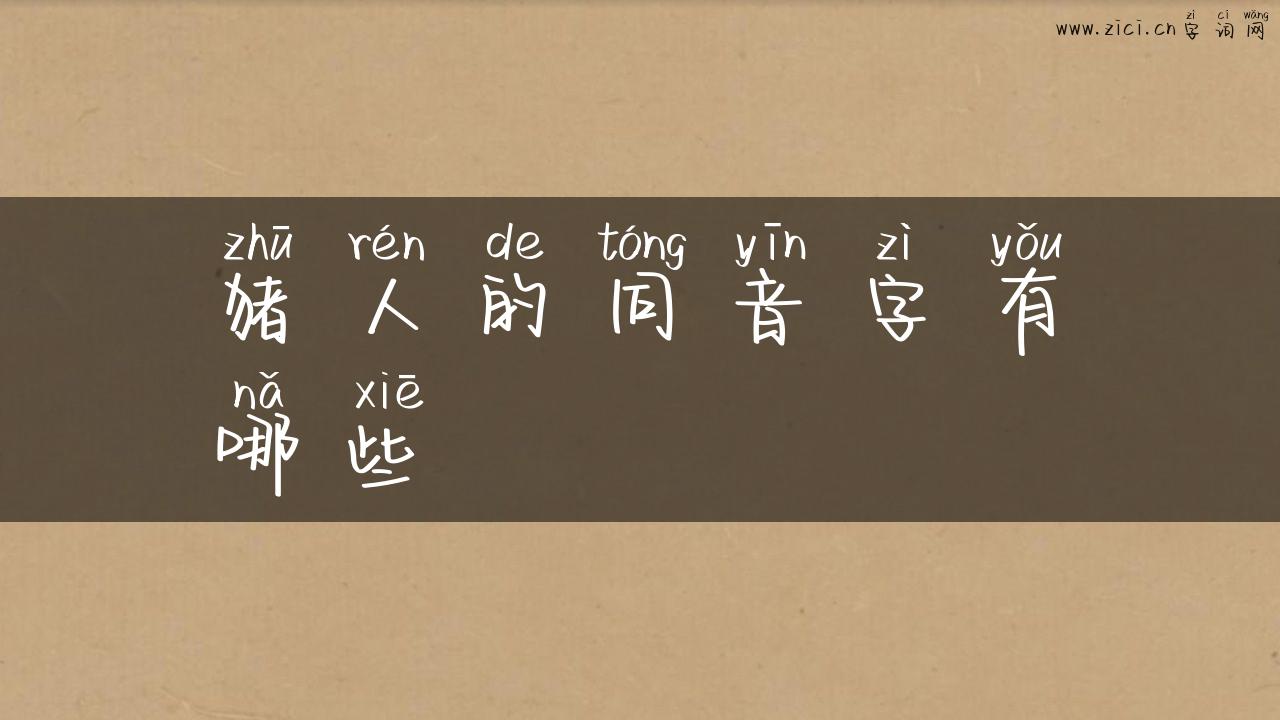 zì cí wǎng
www.zici.cn 字词网
zhū rén de tóng yīn zì yǒu
猪人的同音字有
nǎ xiē
哪些